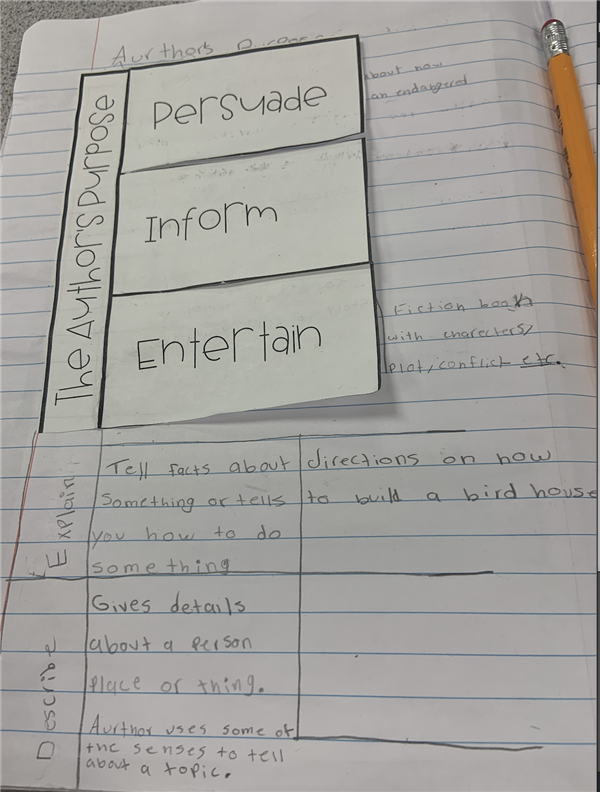 Aurthors
about how
an endangered
The Author's Purpose
Persuade
Inform
Entertain
Fiction books
with charecters/
Plot/conflict etc.
Explain
Tell facts about
something or tells
you how to do
something
directions on how
to build a bird house
Describe
Gives details
about a person
place or thing.
Aurthor uses some of
the senses to tell
about a topic.